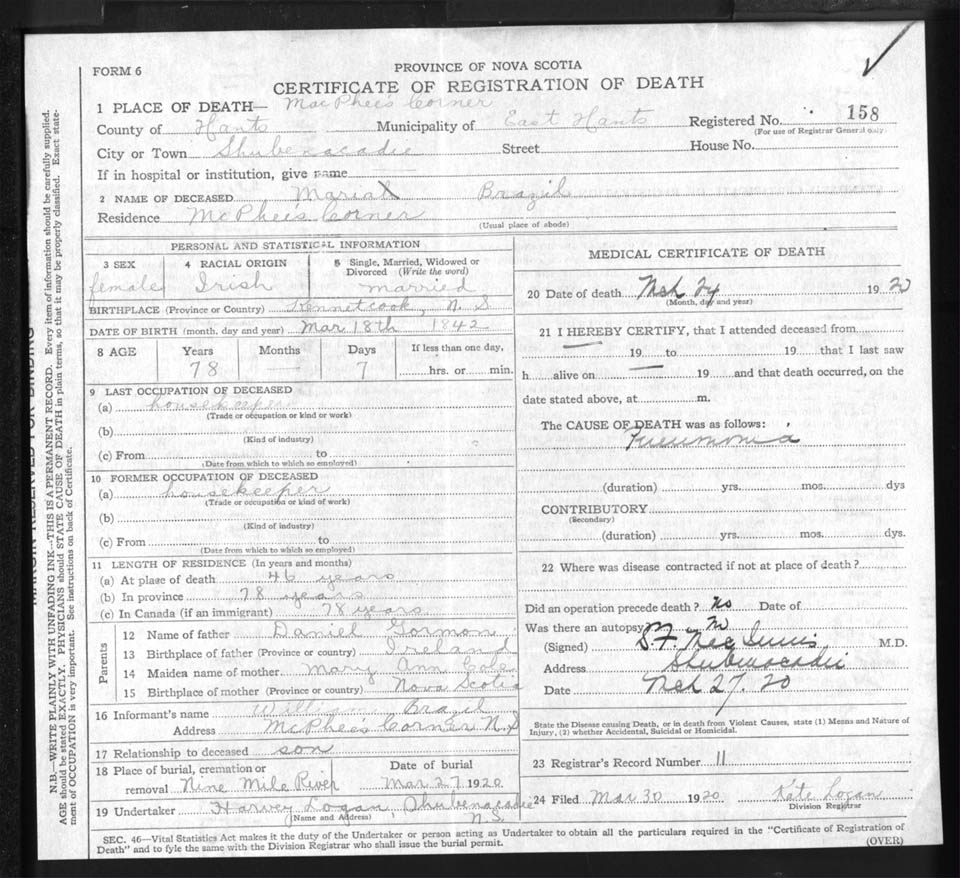 FORM 6
PROVINCE OF NOVA SCOTIA
CERTIFICATE OF REGISTRATION OF DEATH
1 PLACE OF DEATH— MacPhees Corner
County of Hants Municipality of East Hants Registered No. 158
(For use of Registrar General only)
City or Town Shubenacadie Street House No.
If in hospital or institution, give name
2 NAME OF DECEASED Maria Brazil
Residence McPhees Corner
(Usual place of abode)
PERSONAL AND STATISTICAL INFORMATION
3 SEX 4 RACIAL ORIGIN 5 Single, Married, Widowed or Divorced (Write the word)
female Irish married
BIRTHPLACE (Province or Country) Kennetcook, N. S
DATE OF BIRTH (month, day and year) Mar 18th 1842
8 AGE Years Months Days If less than one day,
78 — 7 hrs. or min.
9 LAST OCCUPATION OF DECEASED
(a) housekeeper
(Trade or occupation or kind or work)
(b)
(Kind of industry)
(c) From to
(Date from which to which so employed)
10 FORMER OCCUPATION OF DECEASED
(a) housekeeper
(Trade or occupation or kind of work)
(b)
(Kind of industry)
(c) From to
(Date from which to which so employed)
11 LENGTH OF RESIDENCE (In years and months)
(a) At place of death 46 years
(b) In province 78 years
(c) In Canada (if an immigrant) 78 years
Parents
12 Name of father Daniel Gormon
13 Birthplace of father (Province or country) Ireland
14 Maiden name of mother Mary Ann Cole
15 Birthplace of mother (Province or country) Nova Scotia
16 Informant's name William Brazil
Address McPhee's Corner N.S
17 Relationship to deceased son
18 Place of burial, cremation or removal Nine Mile River Date of burial Mar 27 1920
19 Undertaker Harvey Logan Shubenacadie N.S.
(Name and Address)
MEDICAL CERTIFICATE OF DEATH
20 Date of death Mch 24 1920
(Month, day and year)
21 I HEREBY CERTIFY, that I attended deceased from
19 to 19 that I last saw
h alive on 19 and that death occurred, on the
date stated above, at m.
The CAUSE OF DEATH was as follows:
Pneumonia
(duration) yrs. mos. dys
CONTRIBUTORY
(Secondary)
(duration) yrs. mos. dys.
22 Where was disease contracted if not at place of death?
Did an operation precede death? No Date of
Was there an autopsy No
(Signed) M.D.
Address Shubenacadie
Date Mch 27. 20
State the Disease causing Death, or in death from Violent Causes, state (1) Means and Nature of
Injury, (2) whether Accidental, Suicidal or Homicidal.
23 Registrar's Record Number 11
24 Filed Mar 30 1920 Kate Logan
Division Registrar
SEC. 46—Vital Statistics Act makes it the duty of the Undertaker or person acting as Undertaker to obtain all the particulars required in the "Certificate of Registration of
Death" and to fyle the same with the Division Registrar who shall issue the burial permit. (OVER)
MARGIN RESERVED FOR BINDING
N.B.—WRITE PLAINLY WITH UNFADING INK—THIS IS A PERMANENT RECORD. Every item of information should be carefully supplied.
AGE should be stated EXACTLY. PHYSICIANS should STATE CAUSE OF DEATH in plain terms, so that it may be properly classified. Exact state-
ment of OCCUPATION is very important. See instructions on back of Certificate.